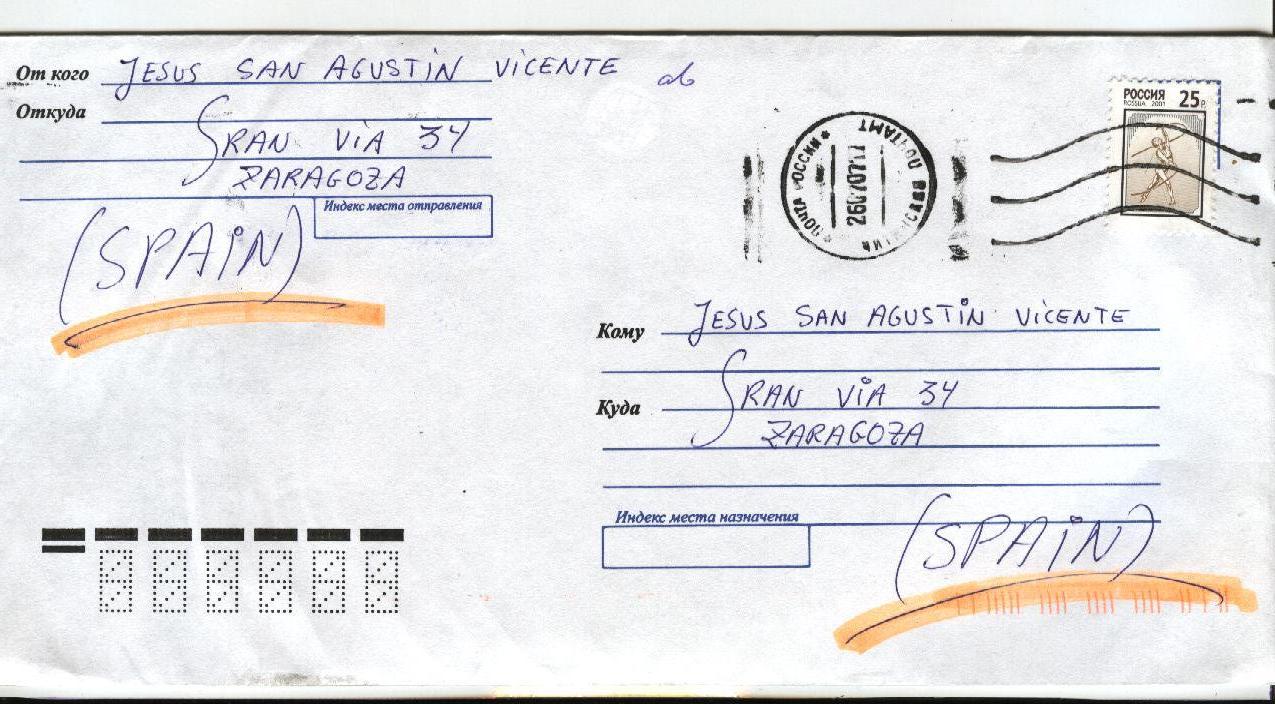 От кого JESUS SAN AGUSTIN VICENTE
Откуда
GRAN VIA 34
ZARAGOZA
Индекс места отправления
(SPAIN)
РОССИЯ 25р
ROSSIJA 2001
ПОЧТА РОССИИ
ПОЧТАМТ
Кому JESUS SAN AGUSTIN VICENTE
Куда GRAN VIA 34
ZARAGOZA
Индекс места назначения
(SPAIN)